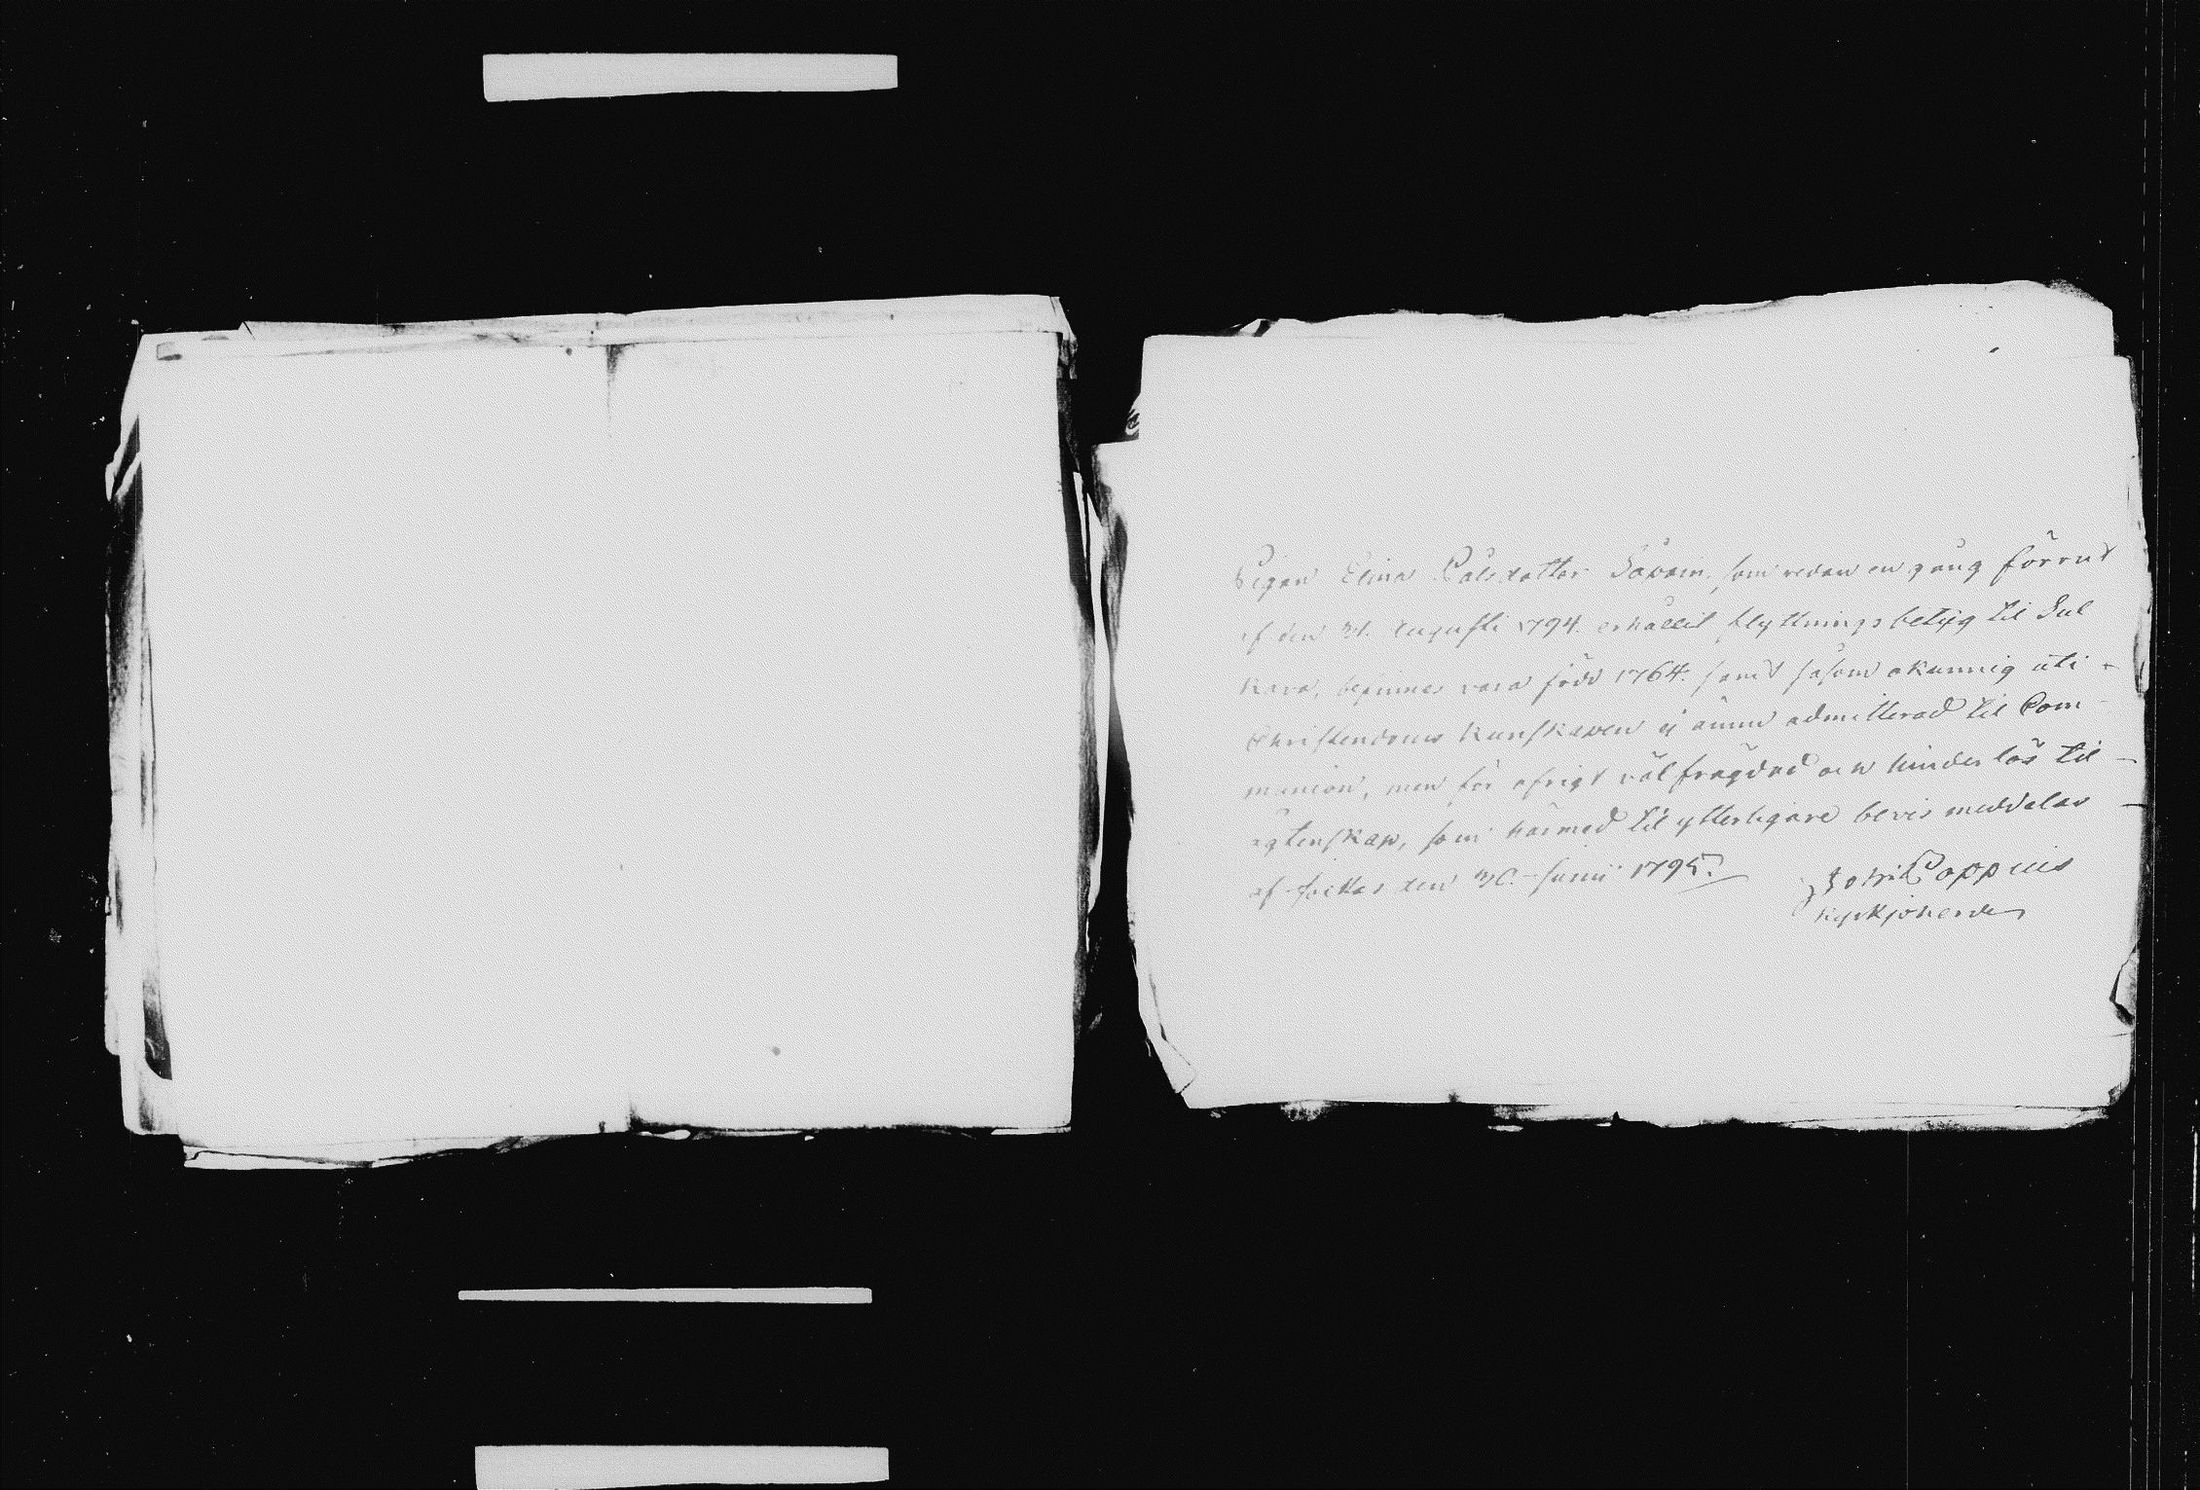 Pigan Elina Pålsdotter Såvain, som redan en gång förrut
af den 31. Augusti 1794. erhållit flyttningsbetyg til Sul
kava, befinnes vara född 1764. samt såsom okunnig uti -
Christendoms kunskapen ej ännu admitterad til Com-
munion, men för öfrigt välfrägdad och hinderlös til -
ägtenskap, som härmed til ytterligare bevis meddelas -
af den 30. Junii 1795.
Joh: Poppius
Kyrkjoherde